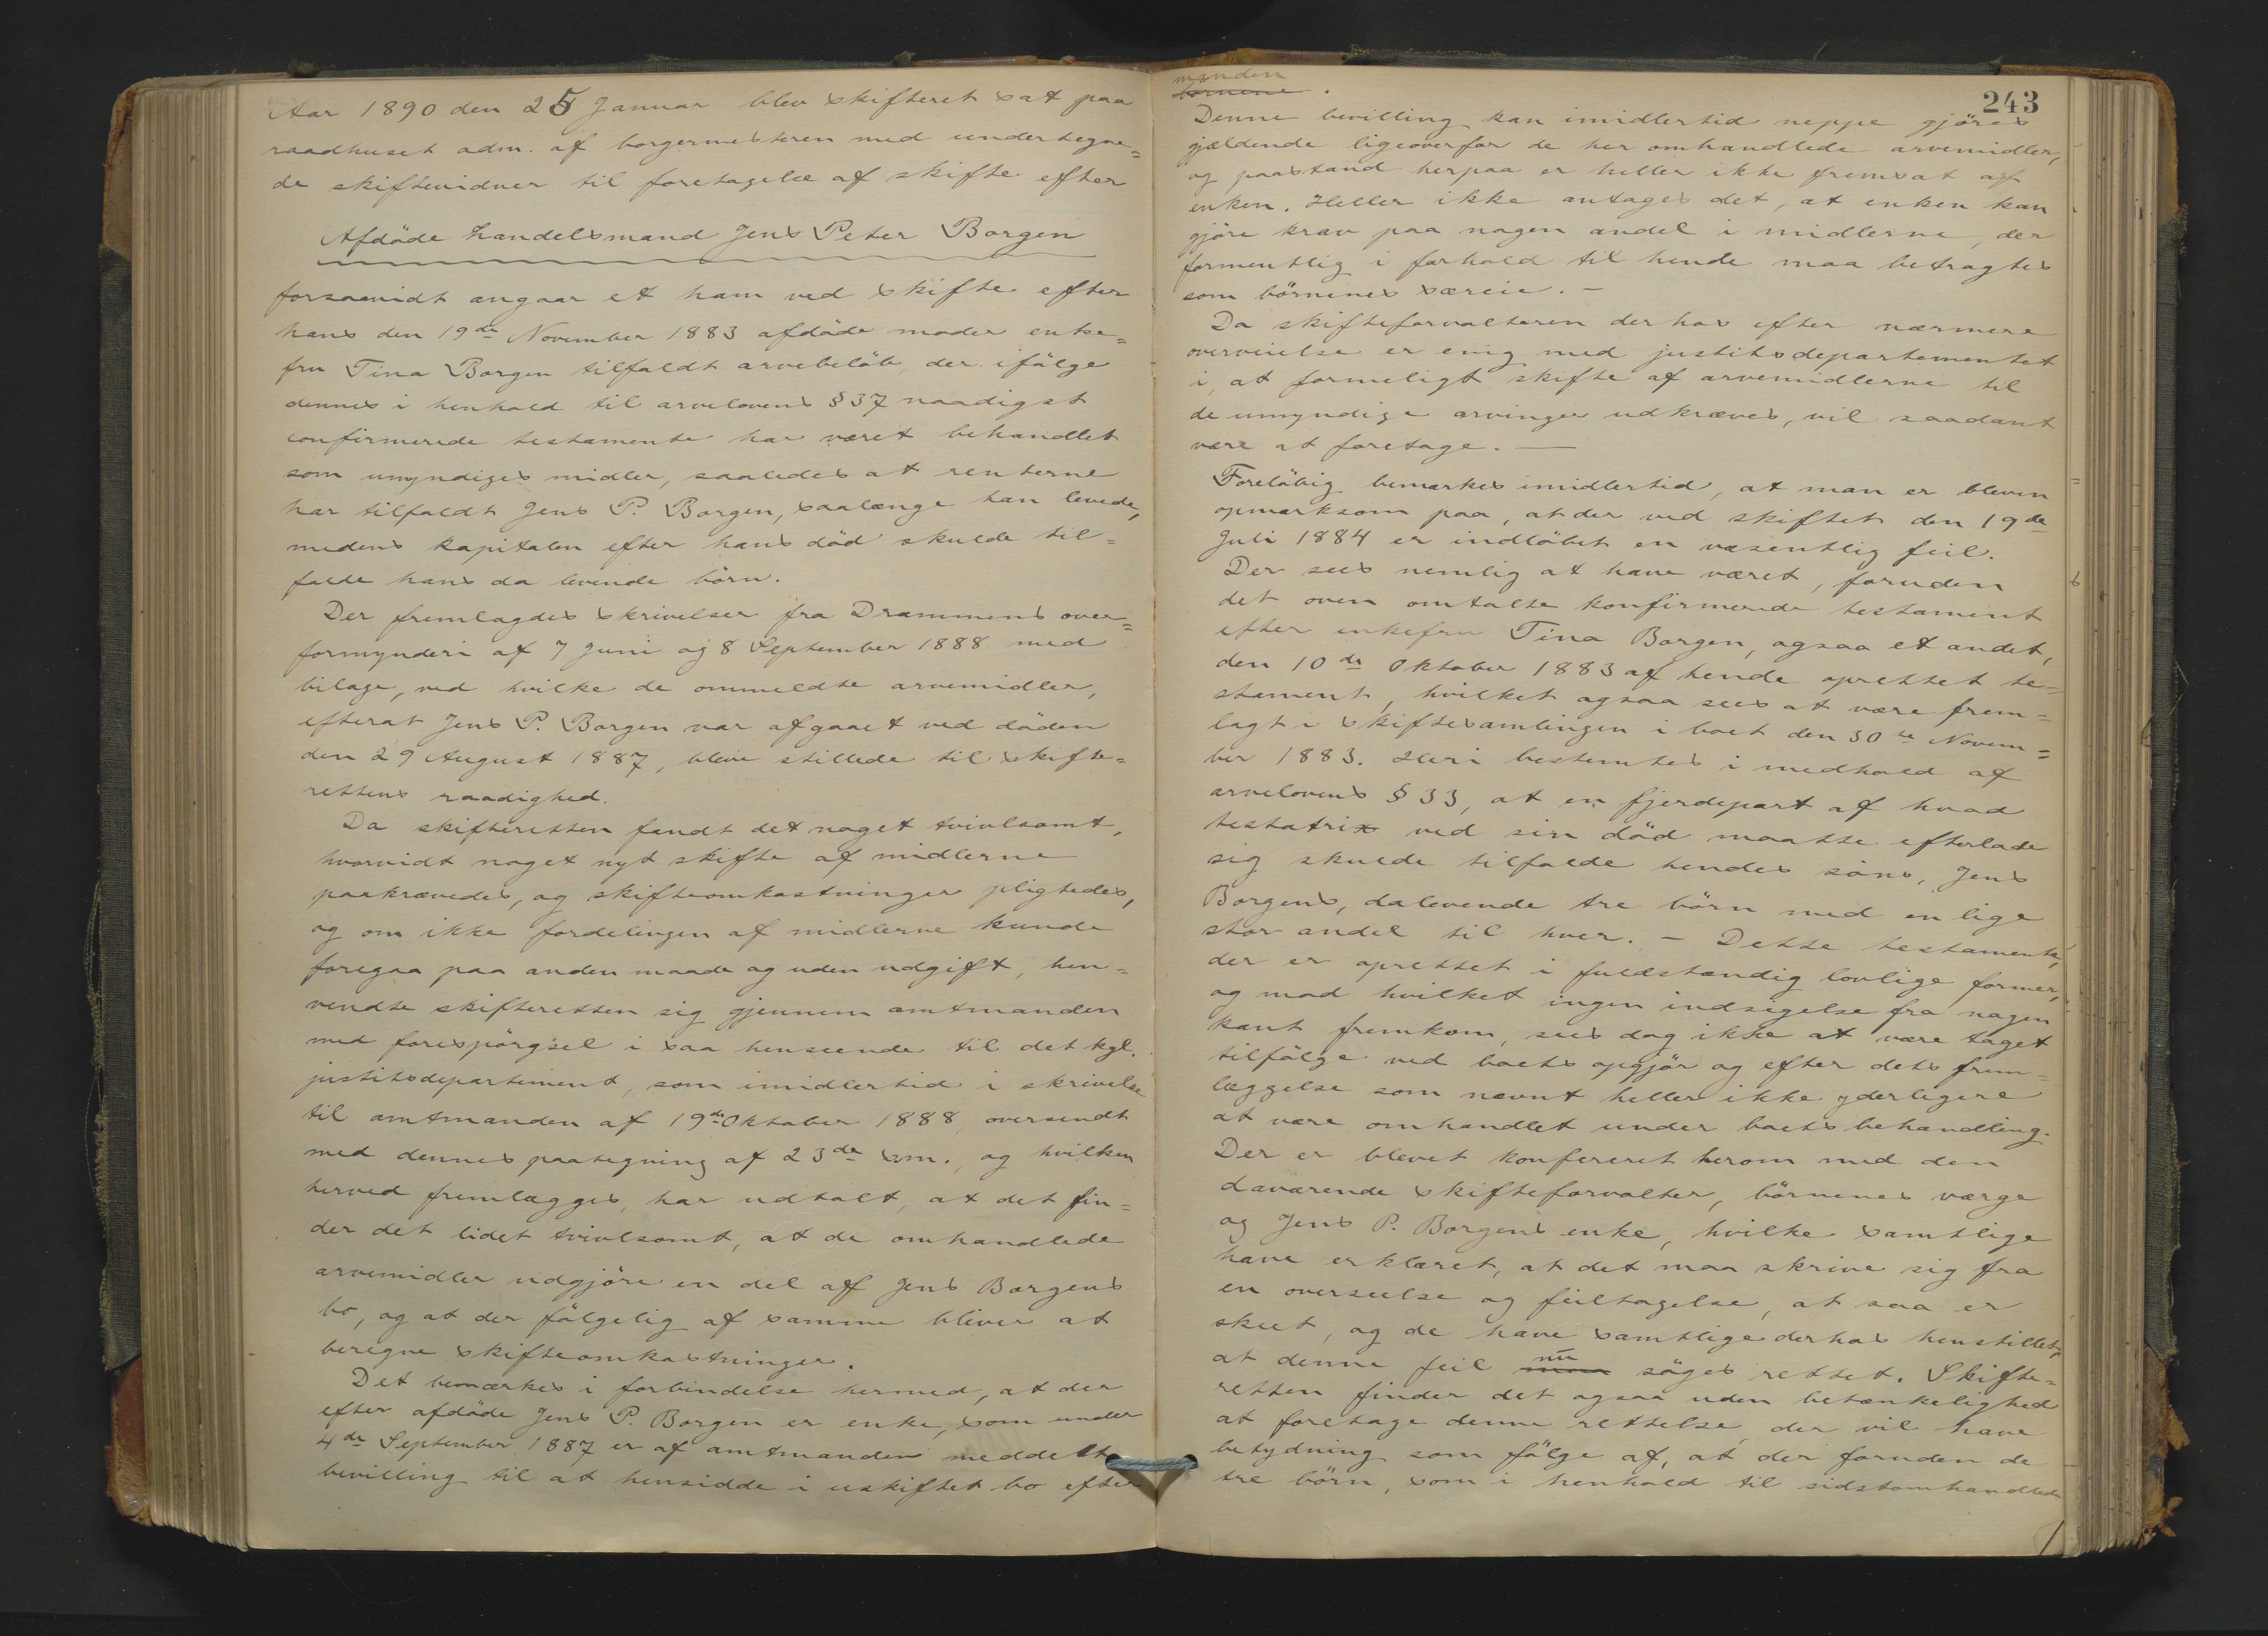 Aar 1890 den 25 Januar blev skifteret sat paa
raadhuset adm. af borgermesteren med undertegne=
de skiftevidner til foretagelse af skifte efter
Afdöde handelsmand Jens Peter Borgen
forsaavidt angaar et ham ved skifte efter
hans den 19de November 1883 afdöde moder enke=
fru Tina Borgen tilfaldt arvebelöb, der ifölge
dennes i henhold til arvelovens § 37 naadigst
confirmerede testamente har været behandlet
som umyndiges midler, saaledes at renterne
har tilfaldt Jens P. Borgen, saalænge han levede,
medens kapitalen efter hans död skulde til=
falde hans da levende börn.
Der fremlagdes skrivelser fra Drammens over=
formynderi af 7 Juni og 8 September 1888 med
bilage, ved hvilke de ommeldte arvemidler,
efterat Jens P. Borgen var afgaaet ved döden
den 29 August 1887, bleve stillede til skifte=
rettens raadighed.
Da skifteretten fandt det noget tvivlsomt,
hvorvidt noget nyt skifte af midlerne
paakrævedes, og skifteomkostninger pligtedes,
og om ikke fordelingen af midlerne kunde
foregaa paa anden maade og uden udgift, hen=
vendte skifteretten sig gjennem amtmanden
med forespörgsel i saa henseende til det kgl.
justitsdepartement, som imidlertid i skrivelse
til amtmanden af 19de Oktober 1888, oversendt
med dennes paategning af 23de s.m., og hvilken
herved fremlægges, har udtalt, at det fin=
der det lidet tvivlsomt, at de omhandlede
arvemidler udgjöre en del af Jens Borgens
bo, og at der fölgelig af samme bliver at
beregne skifteomkostninger.
Det bemærkes i forbindelse hermed, at der
efter afdöde Jens P. Borgen er enke, som under
4de September 1887 er af amtmanden meddelt
bevilling til at hensidde i uskiftet bo efter
243
manden
börnene.
Denne bevilling kan imidlertid neppe gjöres
gjældende ligeoverfor de her omhandlede arvemidler,
og paastand herpaa er heller ikke fremsat af
enken. Heller ikke antages det, at enken kan
gjöre krav paa nogen andel i midlerne, der
formentlig i forhold til hende maa betragtes
som börnenes særeie. –
Da skifteforvalteren derhos efter nærmere
overveielse er enig med justitsdepartementet
i, at formeligt skifte af arvemidlerne til
de umyndige arvinger udkræves, vil saadant
være at foretage. —
Foreløbig bemærkes imidlertid, at man er bleven
opmærksom paa, at der ved skiftet den 19de
Juli 1884 er indlöbet en væsentlig feil.
Der sees nemlig at have været, foruden
det oven omtalte konfirmerede testament
efter enkefru Tina Borgen, ogsaa et andet,
den 10de Oktober 1883 af hende oprettet te=
stament, hvilket ogsaa sees at være frem=
lagt i skiftesamlingen i boet den 30te Novem=
ber 1883. Heri bestemtes i medhold af
arvelovens § 33, at en fjerdepart af hvad
testatrix ved sin död maatte efterlade
sig skulde tilfalde hendes söns, Jens
Borgens, dalevende tre börn med en lige
stor andel til hver. – Dette testamente,
der er oprettet i fuldstændig lovlige former,
og mod hvilket ingen indsigelse fra nogen
kant fremkom, sees dog ikke at være taget
tilfölge ved boets opgjör og efter dets frem=
læggelse som nævnt heller ikke yderligere
at være omhandlet under boets behandling.
Der er blevet konfereret herom med den
daværende skifteforvalter, börnenes værge
og Jens P. Borgens enke, hvilke samtlige
have erklæret, at det maa skrive sig fra
en overseelse og feiltagelse, at saa er
skeet, og de have samtlige derhos henstillet,
at denne feil nu söges rettet. Skifte=
retten finder det ogsaa uden betænkelighed
at foretage denne rettelse, der vil have
betydning som fölge af, at der foruden de
tre börn, som i henhold til sidstomhandlede